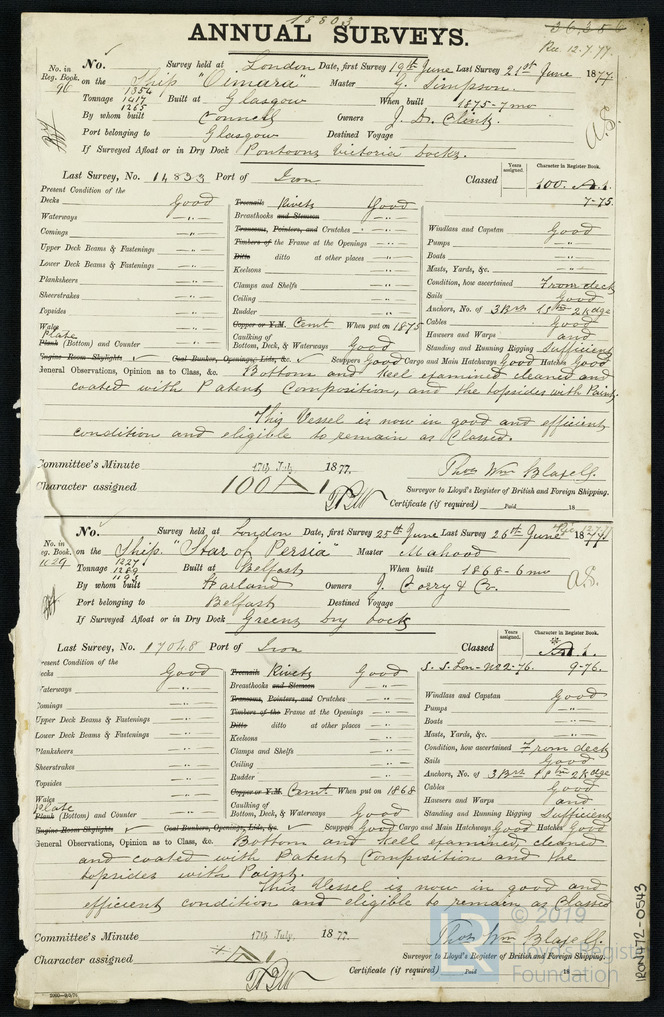 18803
ANNUAL SURVEYS.
36,356
Rec. 12.7.77.
No. in Reg. Book. 96
No. Survey held at London Date, first Survey 19th June Last Survey 21st June 1877
on the Ship "Oimara" Master G. Simpson.
Tonnage 1354 1417 1265 Built at Glasgow When built 1875-7mo
By whom built Connell Owners J. Dr. Clint.
Port belonging to Glasgow Destined Voyage
If Surveyed Afloat or in Dry Dock Pontoons Victoria Docks.
Last Survey, No. 14833 Port of Iron Classed
Years assigned. Character in Register Book.
100. A.1.
7-75.
Present Condition of the
Decks Good
Waterways -"-
Comings -"-
Upper Deck Beams & Fastenings -"-
Lower Deck Beams & Fastenings -"-
Planksheers -"-
Sheerstrakes -"-
Topsides -"-
Wales -"-
Plate
Plank (Bottom) and Counter -"-
Treenails Rivets Good
Breasthooks and Stemson -"-
Transoms, Pointers, and Crutches -"-
Timbers of the Frame at the Openings -"-
Ditto ditto at other places -"-
Keelsons -"-
Clamps and Shelfs -"-
Ceiling -"-
Rudder -"-
Copper or Y.M. Cemt. When put on 1875
Caulking of Bottom, Deck, & Waterways Good
Windlass and Capstan Good
Pumps -"-
Boats -"-
Masts, Yards, &c. -"-
Condition, how ascertained From deck
Sails Good
Anchors, No. of 3 Brs 1 Stm 2 Kedge
Cables Good
Hawsers and Warps and
Standing and Running Rigging Sufficient
Engine Room Skylights ✓ Coal Bunker, Openings, Lids, &c. ✓ Scuppers Good Cargo and Main Hatchways Good Hatches Good
General Observations, Opinion as to Class, &c. Bottom and keel examined cleaned and
coated with Patent Composition, and the topsides with Paint.
This Vessel is now in good and efficient
condition and eligible to remain as Classed.
Committee's Minute 17th July. 1877.
Character assigned 100 A 1
Thos Wm Blaxell.
Surveyor to Lloyd's Register of British and Foreign Shipping.
Certificate (if required) Paid 18
No. in Reg. Book. 1029
No. Survey held at London Date, first Survey 25th June Last Survey 26th June 1877
on the Ship "Star of Persia" Master Mahood
Tonnage 1227 1289 1193 Built at Belfast When built 1868-6mo
By whom built Harland Owners J. Corry & Co.
Port belonging to Belfast Destined Voyage
If Surveyed Afloat or in Dry Dock Greens Dry Dock
Last Survey, No. 17048 Port of Iron Classed
Years assigned. Character in Register Book.
A.1.
S.S. Lon-No2-76. 9-76.
Present Condition of the
Decks Good
Waterways -"-
Comings -"-
Upper Deck Beams & Fastenings -"-
Lower Deck Beams & Fastenings -"-
Planksheers -"-
Sheerstrakes -"-
Topsides -"-
Wales -"-
Plate
Plank (Bottom) and Counter -"-
Treenails Rivets Good
Breasthooks and Stemson -"-
Transoms, Pointers, and Crutches -"-
Timbers of the Frame at the Openings -"-
Ditto ditto at other places -"-
Keelsons -"-
Clamps and Shelfs -"-
Ceiling -"-
Rudder -"-
Copper or Y.M. Cemt. When put on 1868
Caulking of Bottom, Deck, & Waterways Good
Windlass and Capstan Good
Pumps -"-
Boats -"-
Masts, Yards, &c. -"-
Condition, how ascertained From deck
Sails Good
Anchors, No. of 3 Brs 1 Stm 2 Kdge
Cables Good
Hawsers and Warps and
Standing and Running Rigging Sufficient
Engine Room Skylights ✓ Coal Bunker, Openings, Lids, &c. ✓ Scuppers Good Cargo and Main Hatchways Good Hatches Good
General Observations, Opinion as to Class, &c. Bottom and keel examined cleaned
and coated with Patent Composition and the
topsides with Paint.
This Vessel is now in good and
efficient condition and eligible to remain as Classed
Committee's Minute 17th July. 1877.
Character assigned A 1
Thos Wm Blaxell.
Surveyor to Lloyd's Register of British and Foreign Shipping.
Certificate (if required) Paid 18
© 2019
Lloyd's Register
Foundation
LR
IRON472-0543